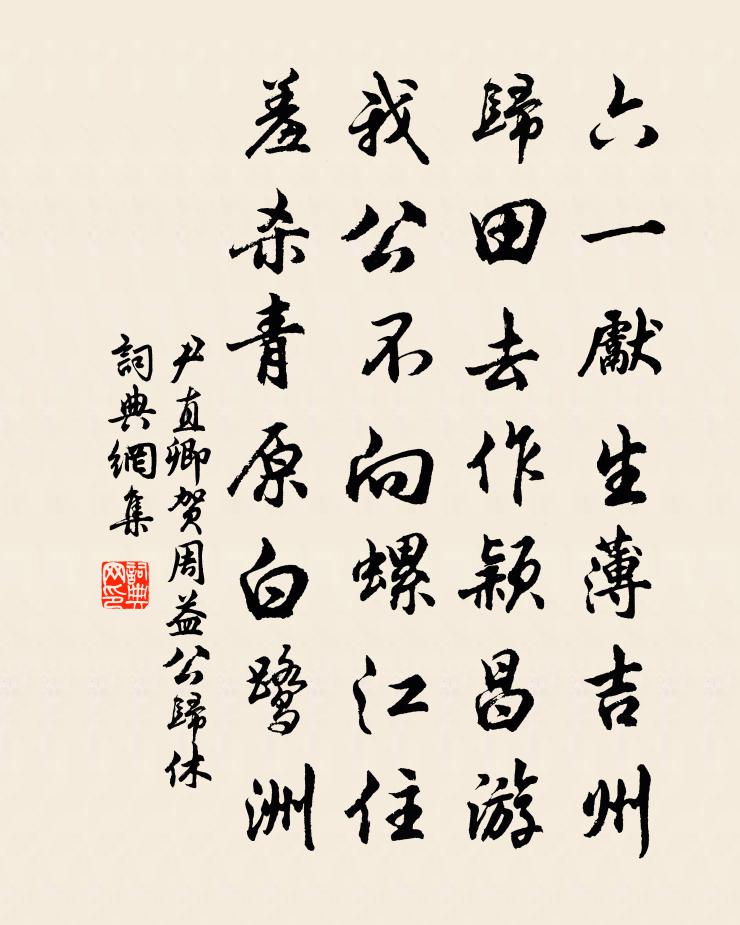 六一獻生薄吉州
歸田去作潁昌游
我公不向螺江住
羞杀青原白鷺洲
尹直卿賀周益公歸休
詞典網集
詞典
网印